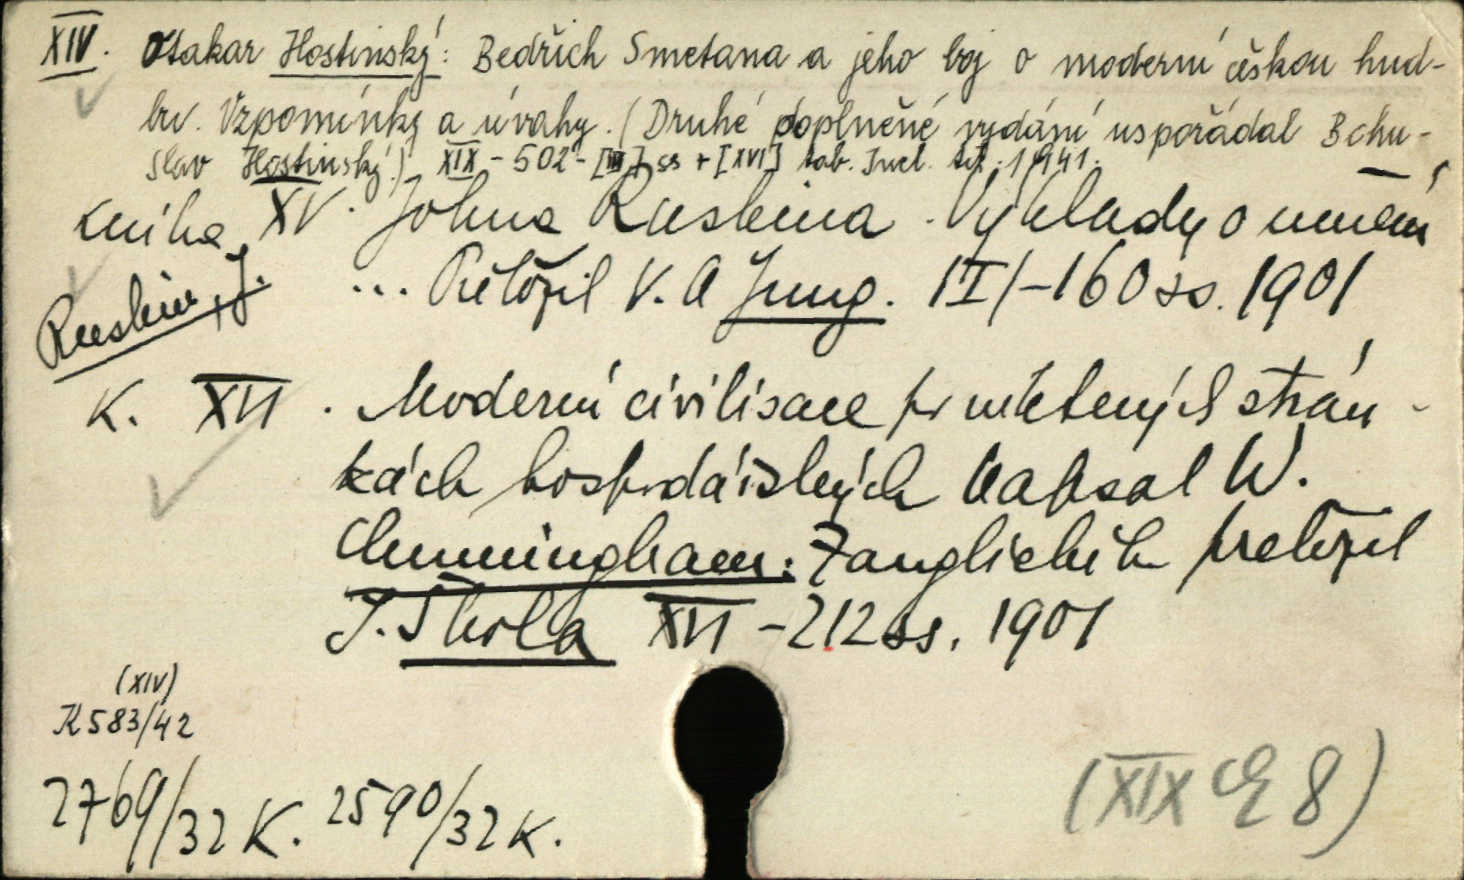 XIV. Otakar Hostinský: Bedřich Smetana a jeho boj o moderní českou hud-
bu. Vzpomínky a úvahy. (Druhé doplněné vydání uspořádal Bohu-
slav Hostinský.) XIX - 502 - [III] ss + [XVI] tab. Incl. tit. 1941.
Kniha XV. Johna Ruskina. Výklady o umění
Ruskin, J. ... Přeložil V. A Jung. II/-160 ss. 1901
K. XVI. Moderní civilisace po některých strán-
kách hospodářských napsal W.
Cunningham: Z angličtiny přeložil
J. Škola XVI - 212 ss. 1901
(XIV)
K 583/42
2769/32 K. 2590/32 K.
(XIX E 8)